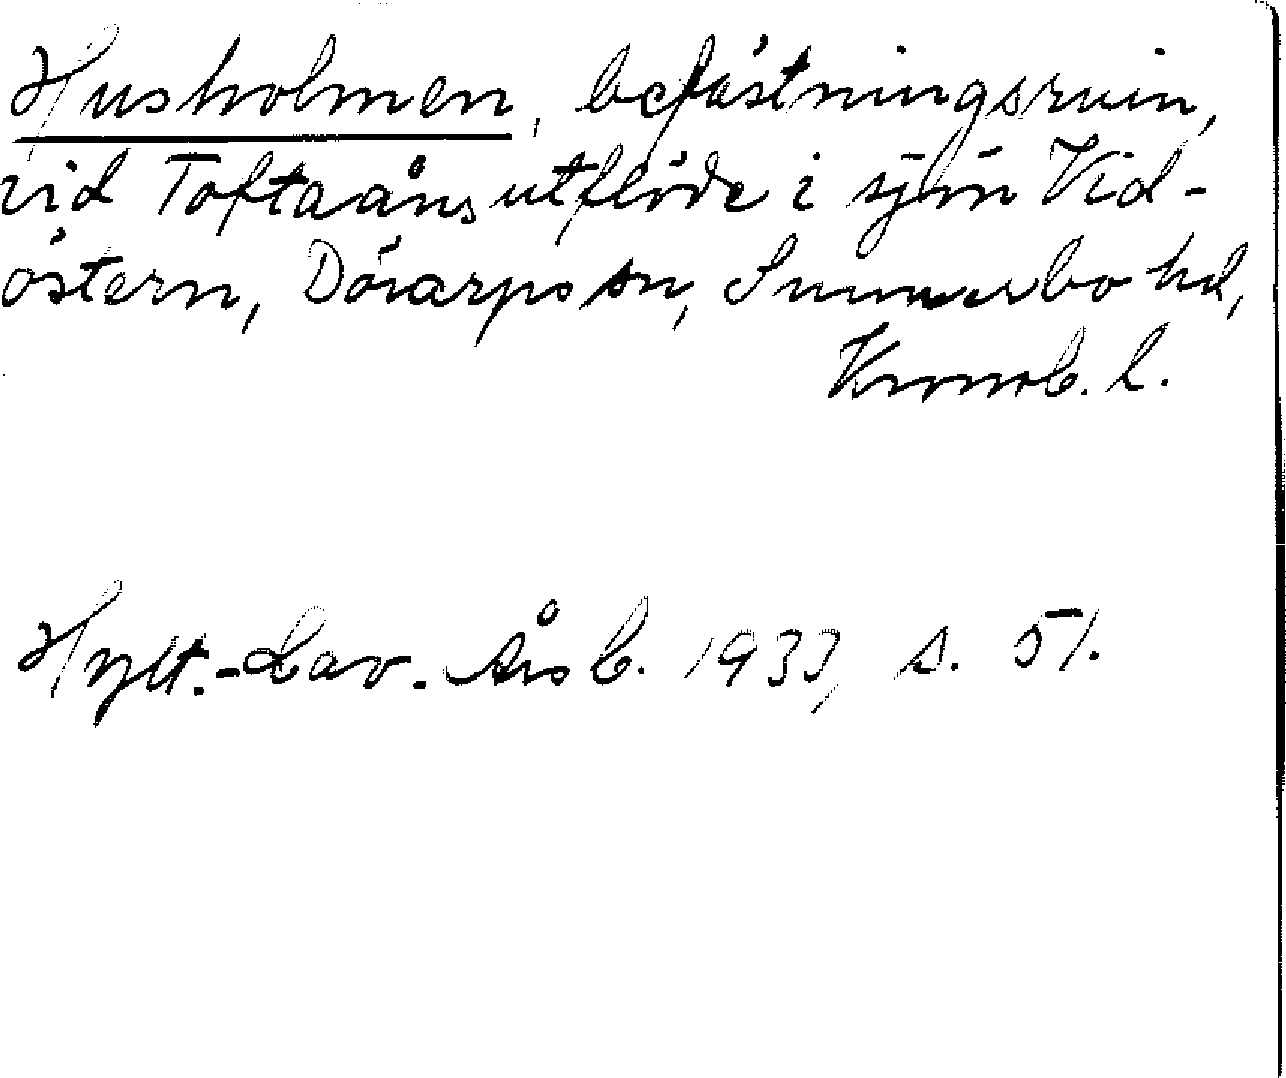 Husholmen, befästningsruin,
vid Toftaåns utflöde i sjön Vid-
östern, Dörarps sn, Sunnerbo hd,
Kronob. l.
Hylt.-Cav. Årsb. 1933, s. 51.